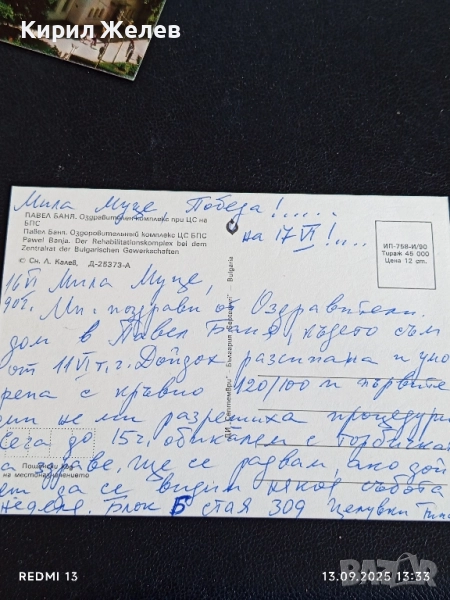 Кирил Желев
Мила Муце, Победа!......
на 17 VI !....
ПАВЕЛ БАНЯ. Оздравителен комплекс при ЦС на
БПС
Павел Баня. Оздоровительный комплекс ЦС БПС
Pawel Banja. Der Rehabilitationskomplex bei dem
Zentralrat der Bulgarischen Gewerkschaften
© Сн. Л. Калев, Д-25373-А
ИП-758-И/90
Тираж 45 000
Цена 12 ст.
16 VI
90г.
Мила Муце,
Ми. поздрави от Оздравителн.
дом в Павел Баня, където съм
от 11 VI т.г. Дойдох разсипана и умо
рена с кръвно 120/100 и първите
дни не ми разрешиха процедури
Сега до 15 г. обикалем с торбичка
за здраве, ще се радвам, ако дой
ет да се видим някоя събота
неделя. Блок Б стая 309 Целувки
Пощенски код
на местоназначението
ДИ „Септември“ България „Септември“ Bulgarie
BAZAR
REDMI 13
13.09.2025 13:33